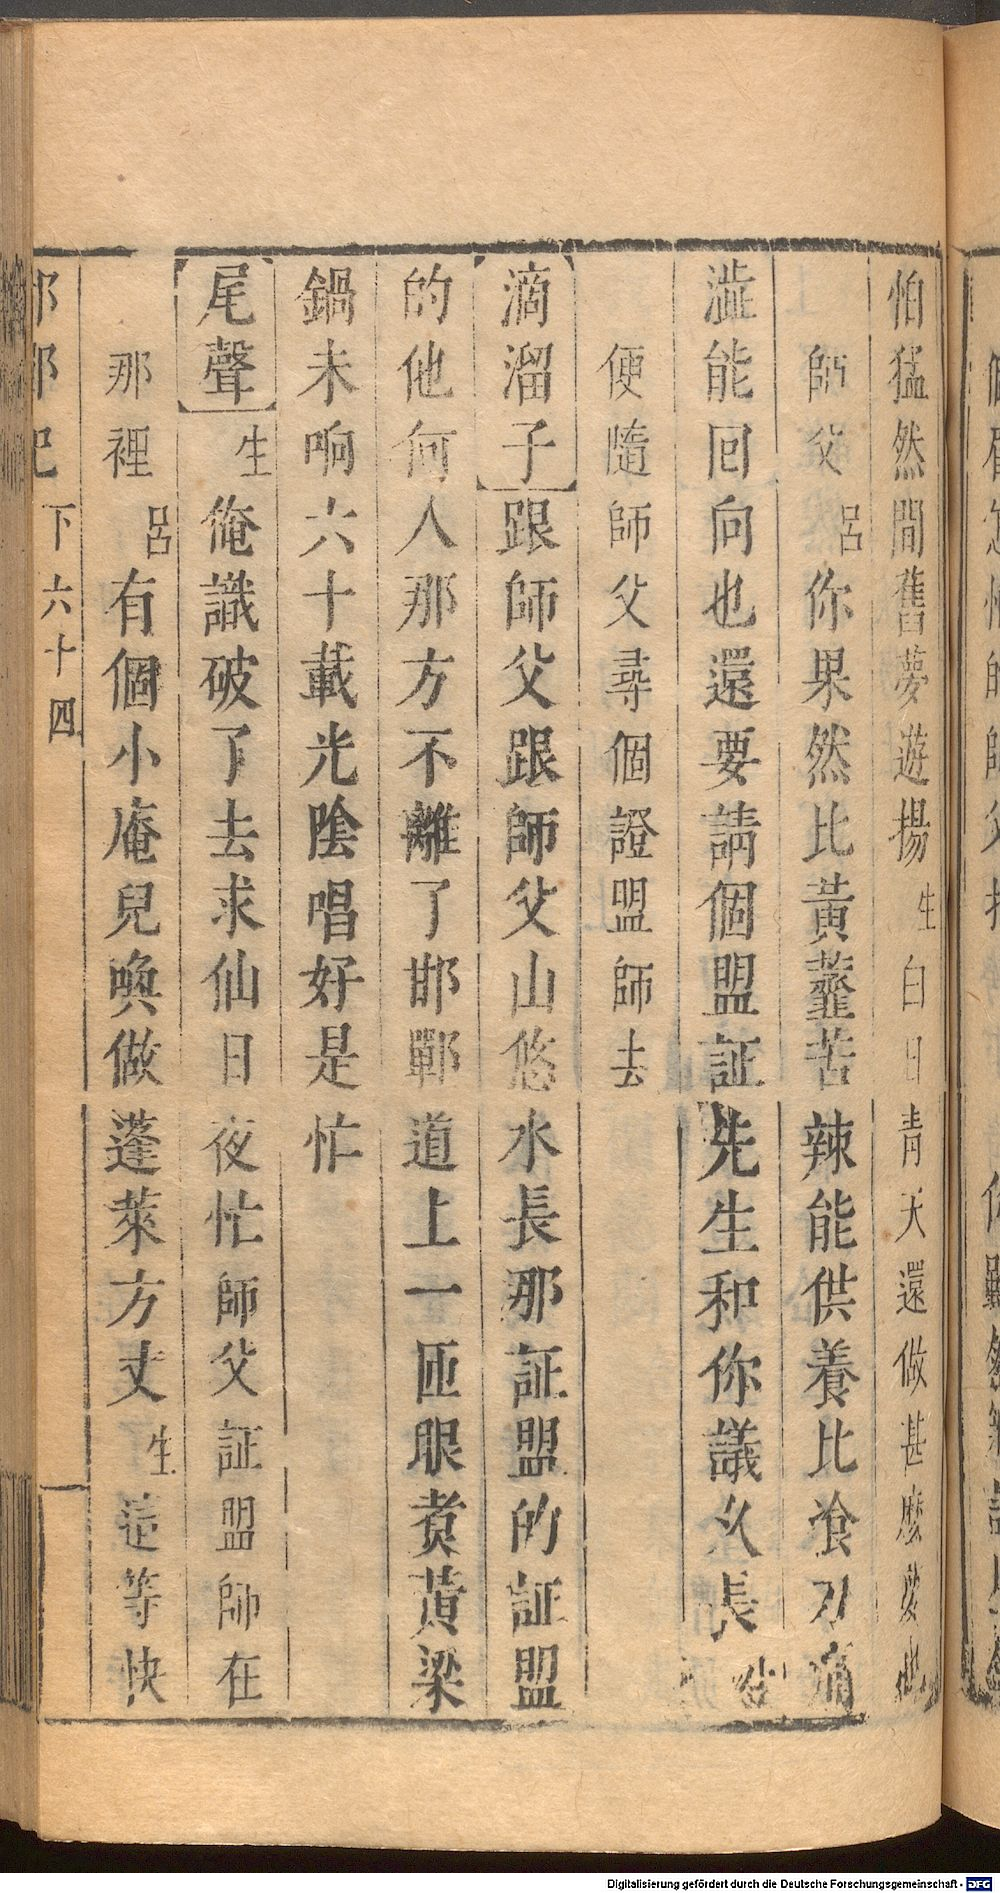 怕猛然間舊夢遊揚生白日青天還做甚麼夢也
師父呂你果然比黃虀苦辣能供養比湌刀痛
澁能回向也還要請個盟証先生和你議久長
便隨師父尋個證盟師去
滴溜子跟師父跟師父山悠水長那証盟的証盟
的他何人那方不離了邯鄲道上一匝眼煑黃粱
鍋未响六十載光陰唱好是忙
尾聲生俺識破了去求仙日夜忙師父証盟師在
那裡呂有個小庵兒喚做蓬萊方丈生這等快
下六十四
Digitalisierung gefördert durch die Deutsche Forschungsgemeinschaft - DFG